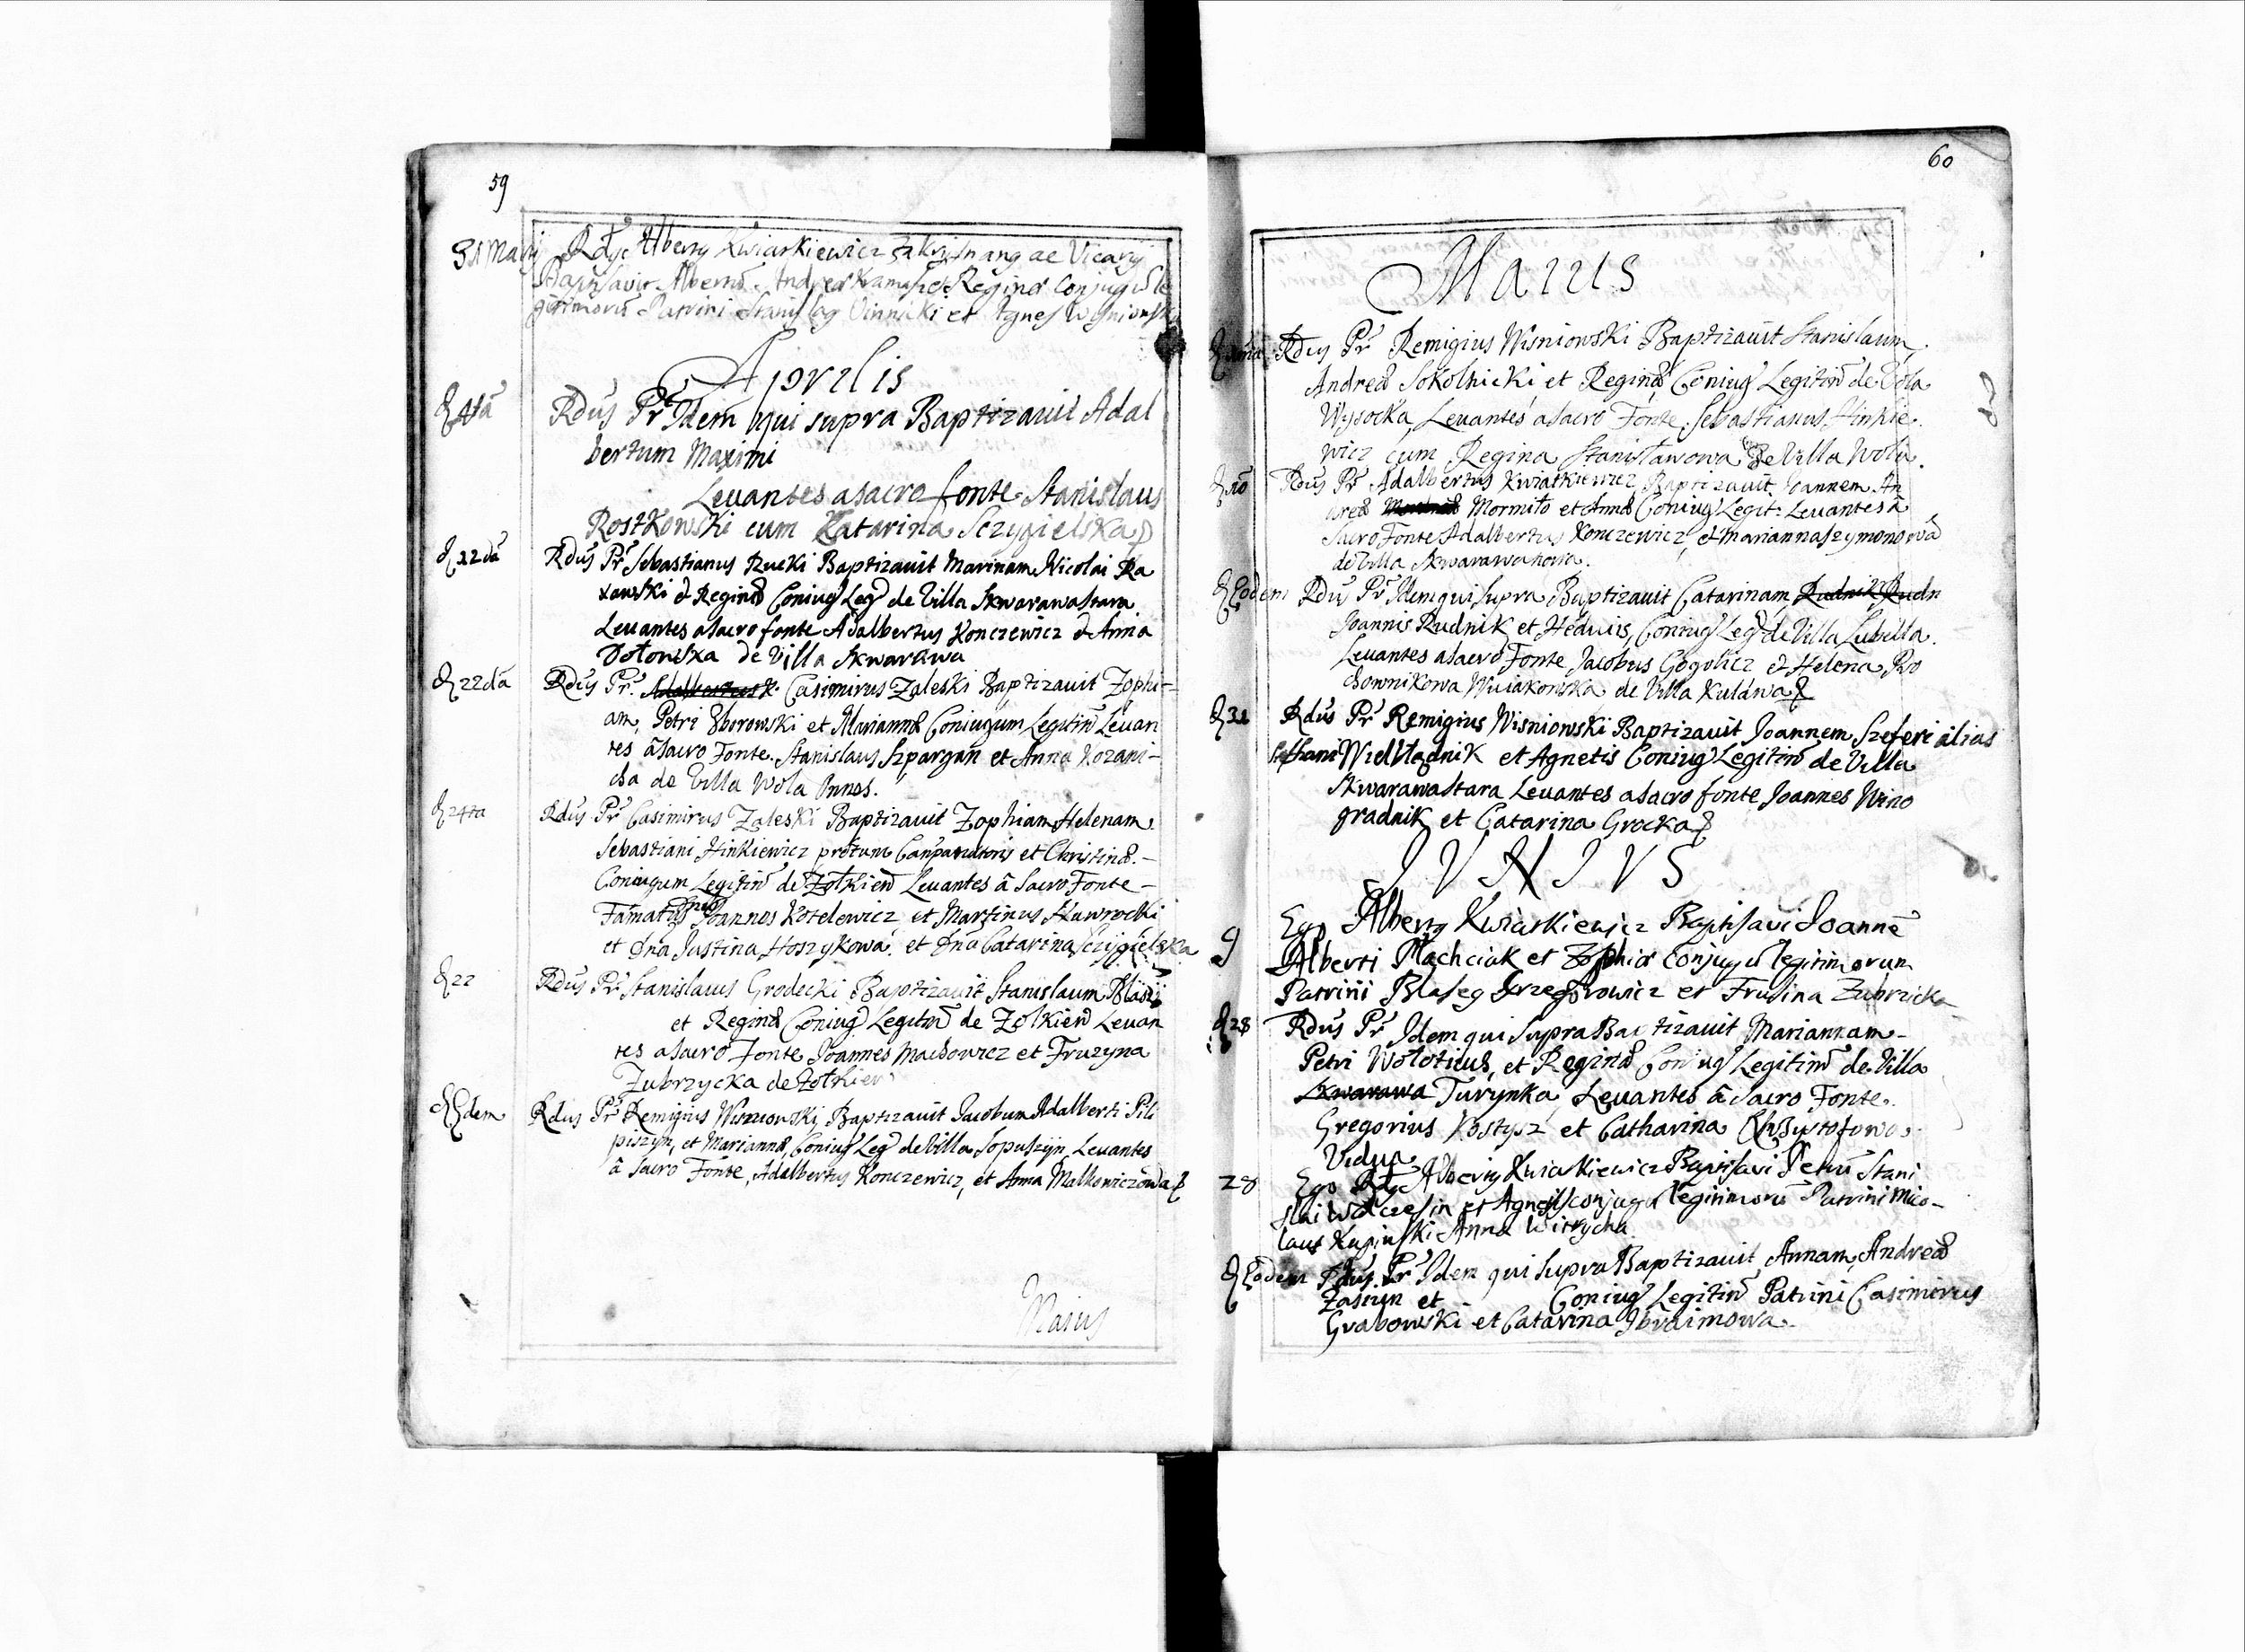 59
31 Marij Rdus Albertus Kwiatkiewicz ac Vicarij
Andreæ et Reginæ Conjugũ le
gitimorũ Patrini Stanislaus Vinnicki et Agnes Wisniowska
Aprilis
D 4ta Rdus Pr Idem qui supra Baptizauit Adal
bertum Maximi
Leuantes a sacro fonte Stanislaus
Rostkowski cum Katarina Sczygielska
D 12da Rdus Pr Sebastianus Rucki Baptizauit Marinam Nicolai Ra
kowski & Reginæ Coniug Leg de Villa Skwarawa Stara
Leuantes a sacro fonte Adalbertus Konczewicz & Anna
Dotowska de Villa Skwarawa
D 22da Rdus Pr Casimirus Zaleski Baptizauit Zophi-
am, Petri Zborowski et Mariannæ Coniugum Legitim Leuan
tes â sacro Fonte Stanislaus Szpargan et Anna Kozani-
cha de Villa Wola
D 24ta Rdus Pr Casimirus Zaleski Baptizauit Zophiam Helenam
Sebastiani Hinkiewicz et Christinæ
Coniugum Legitim de Zołkiew Leuantes â Sacro Fonte
Famatus Joannes Kotelowicz et Martinus Hawrocki
et Dna Justina Hoszykowa et Dna Catarina Sczygielska
D 22 Rdus Pr Stanislaus Grodecki Baptizauit Stanislaum Blasij
et Reginæ Coniug Legitim de Zolkiew Leuan
tes a sacro Fonte Joannes Machowicz et Fruzyna
Zubrzycka de Zołkiew
D Eodem Rdus Pr Remigius Wisniowski Baptizauit Jacobum Adalberti Pili
piszyn, et Mariannæ, Coniug Leg de Villa Sopuszyn, Leuantes
â Sacro Fonte, Adalbertus Konczewicz, et Anna Malkowiczowa
Maius
60
Maius
D 1ma Rdus Pr Remigius Wisniowski Baptizauit Stanislaum
Andreæ Sokolnicki et Reginæ Coniug Legitim de Vola
Wysocka, Leuantes a sacro Fonte Sebastianus Hinkie
wicz cum Regina Stanisławowa de Villa Wola
D 10 Rdus Pr Adalbertus Kwiatkiewicz Baptizauit Joannem An
dreæ Mormiło et Annæ Coniug Legit: Leuantes â
Sacro Fonte Adalbertus Konczewicz, & Marianna Szymonowa
de Villa Skwarawa Nowa
D Eodem Rdus Pr Idem qui supra Baptizauit Catarinam Rudnik Rudn
Joannis Rudnik et Heduis, Coniug Leg de Villa Lubella
Leuantes a sacro Fonte Jacobus Gogolicz & Helena Pro
chownikowa Wuiakowska de Villa Kulawa
D 31 Rdus Pr Remigius Wisniowski Baptizauit Joannem Szeferi alias
Stephani Wielkładnik et Agnetis Coniug Legitim de Villa
Skwarawa Stara Leuantes a sacro fonte Joannes Wino
gradnik et Catarina Grocka
IVNIVS
Ego Albertus Kwiatkiewicz Baptisaui Joannẽ
9 Alberti Machciak et Zophiæ Conjugũ legitimorum
Patrini Blaseg Grzegorowicz et Frusina Zubrzicka
D 28 Rdus Pr Idem qui supra Baptizauit Mariannam
Petri Woloticus, et Reginæ Coniug Legitim de Villa
Skwarawa Turynka, Leuantes â Sacro Fonte
Gregorius Kostysz et Catharina Chrzystoforowa
Vidua
28 Ego Albertus Kwiatkiewicz Baptisaui Petrũ Stani
slai et Agnetis conjugũ legitimorũ Patrini Nico-
laus Kupinski Anna Witrycha
D Eodem Rdus Pr Idem qui supra Baptizauit Annam Andreæ
Zasiun et Coniug Legitim Patrini Casimirus
Grabowski et Catarina Ibraimowa